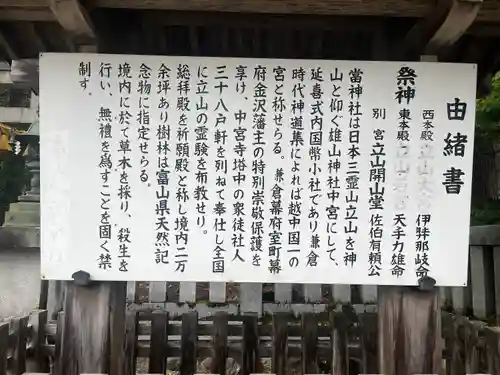 由緒書
祭神
西本殿 伊弉那岐命
東本殿 天手力雄命
別宮 立山開山堂 佐伯有頼公
當神社は日本三霊山立山を神
山と仰ぐ雄山神社中宮にして、
延喜式内国幣小社であり兼倉
時代神道集によれば越中国一の
宮と称せらる。兼倉幕府室町幕
府金沢藩主の特別崇敬保護を
享け、中宮寺塔中の衆徒社人
三十八戸軒を列ねて奉仕し全国
に立山の霊験を布教せり。
総拝殿を祈願殿と称し境内二万
余坪あり樹林は富山県天然記
念物に指定せらる。
境内に於て草木を採り、殺生を
行い、無禮を為すことを固く禁
制す。